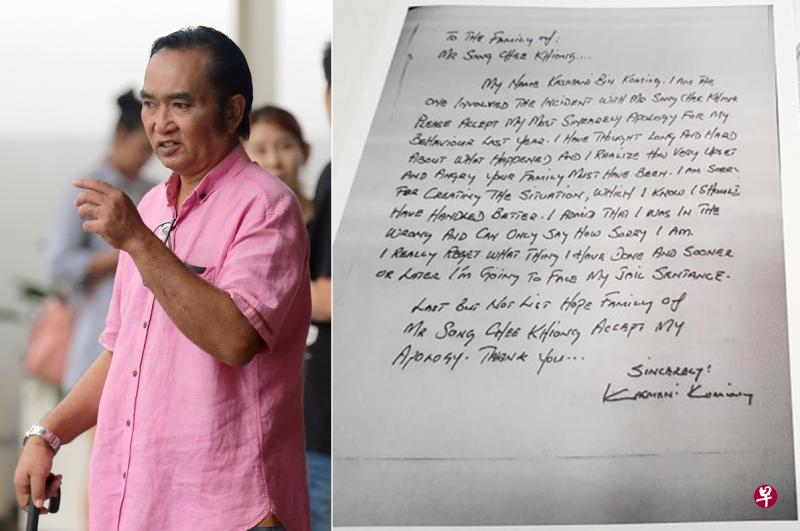 To THE FAMILY OF:
MR SONG CHEE KHIONG...
MY NAME KASMANI BIN KOMING. I AM THE
ONE INVOLVED THE INCIDENT WITH MR SONG CHEE KHIONG
PLEASE ACCEPT MY MOST SINCERELY APOLOGY FOR MY
BEHAVIOUR LAST YEAR. I HAVE THOUGHT LONG AND HARD
ABOUT WHAT HAPPENED AND I REALIZE HOW VERY UPSET
AND ANGRY YOUR FAMILY MUST HAVE BEEN. I AM SORRY
FOR CREATING THE SITUATION, WHICH I KNOW I SHOULD
HAVE HANDLED BETTER. I ADMID THAT I WAS IN THE
WRONG AND CAN ONLY SAY HOW SORRY I AM.
I REALLY REGET WHAT THING I HAVE DONE AND SOONER
OR LATER I'M GOING TO FACE MY JAIL SENTANCE.
LAST BUT NOT LIST HOPE FAMILY OF
MR SONG CHEE KHIONG ACCEPT MY
APOLOGY. THANK YOU...
SINCARELY!
KASMANI KOMING
早